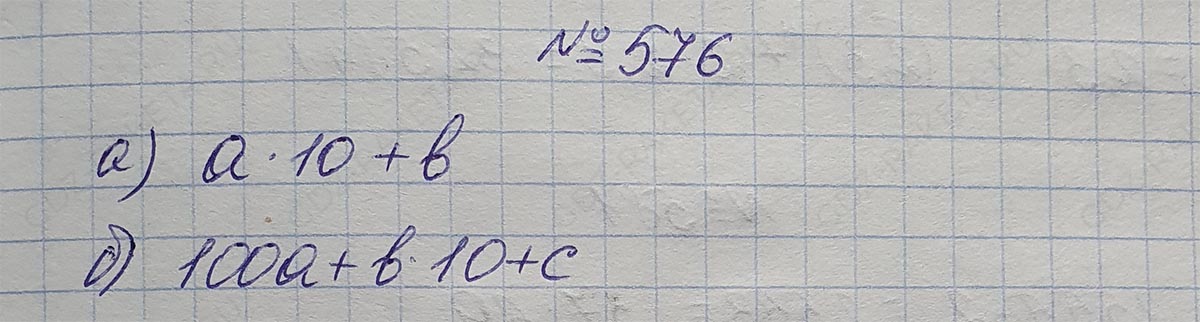 № 576
а) a · 10 + b
б) 100a + b · 10 + c